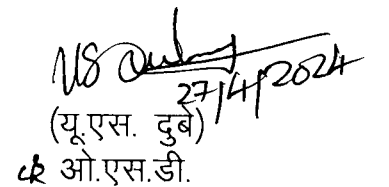 27/4/2024
(यू.एस. दुबे)
ओ.एस.डी.